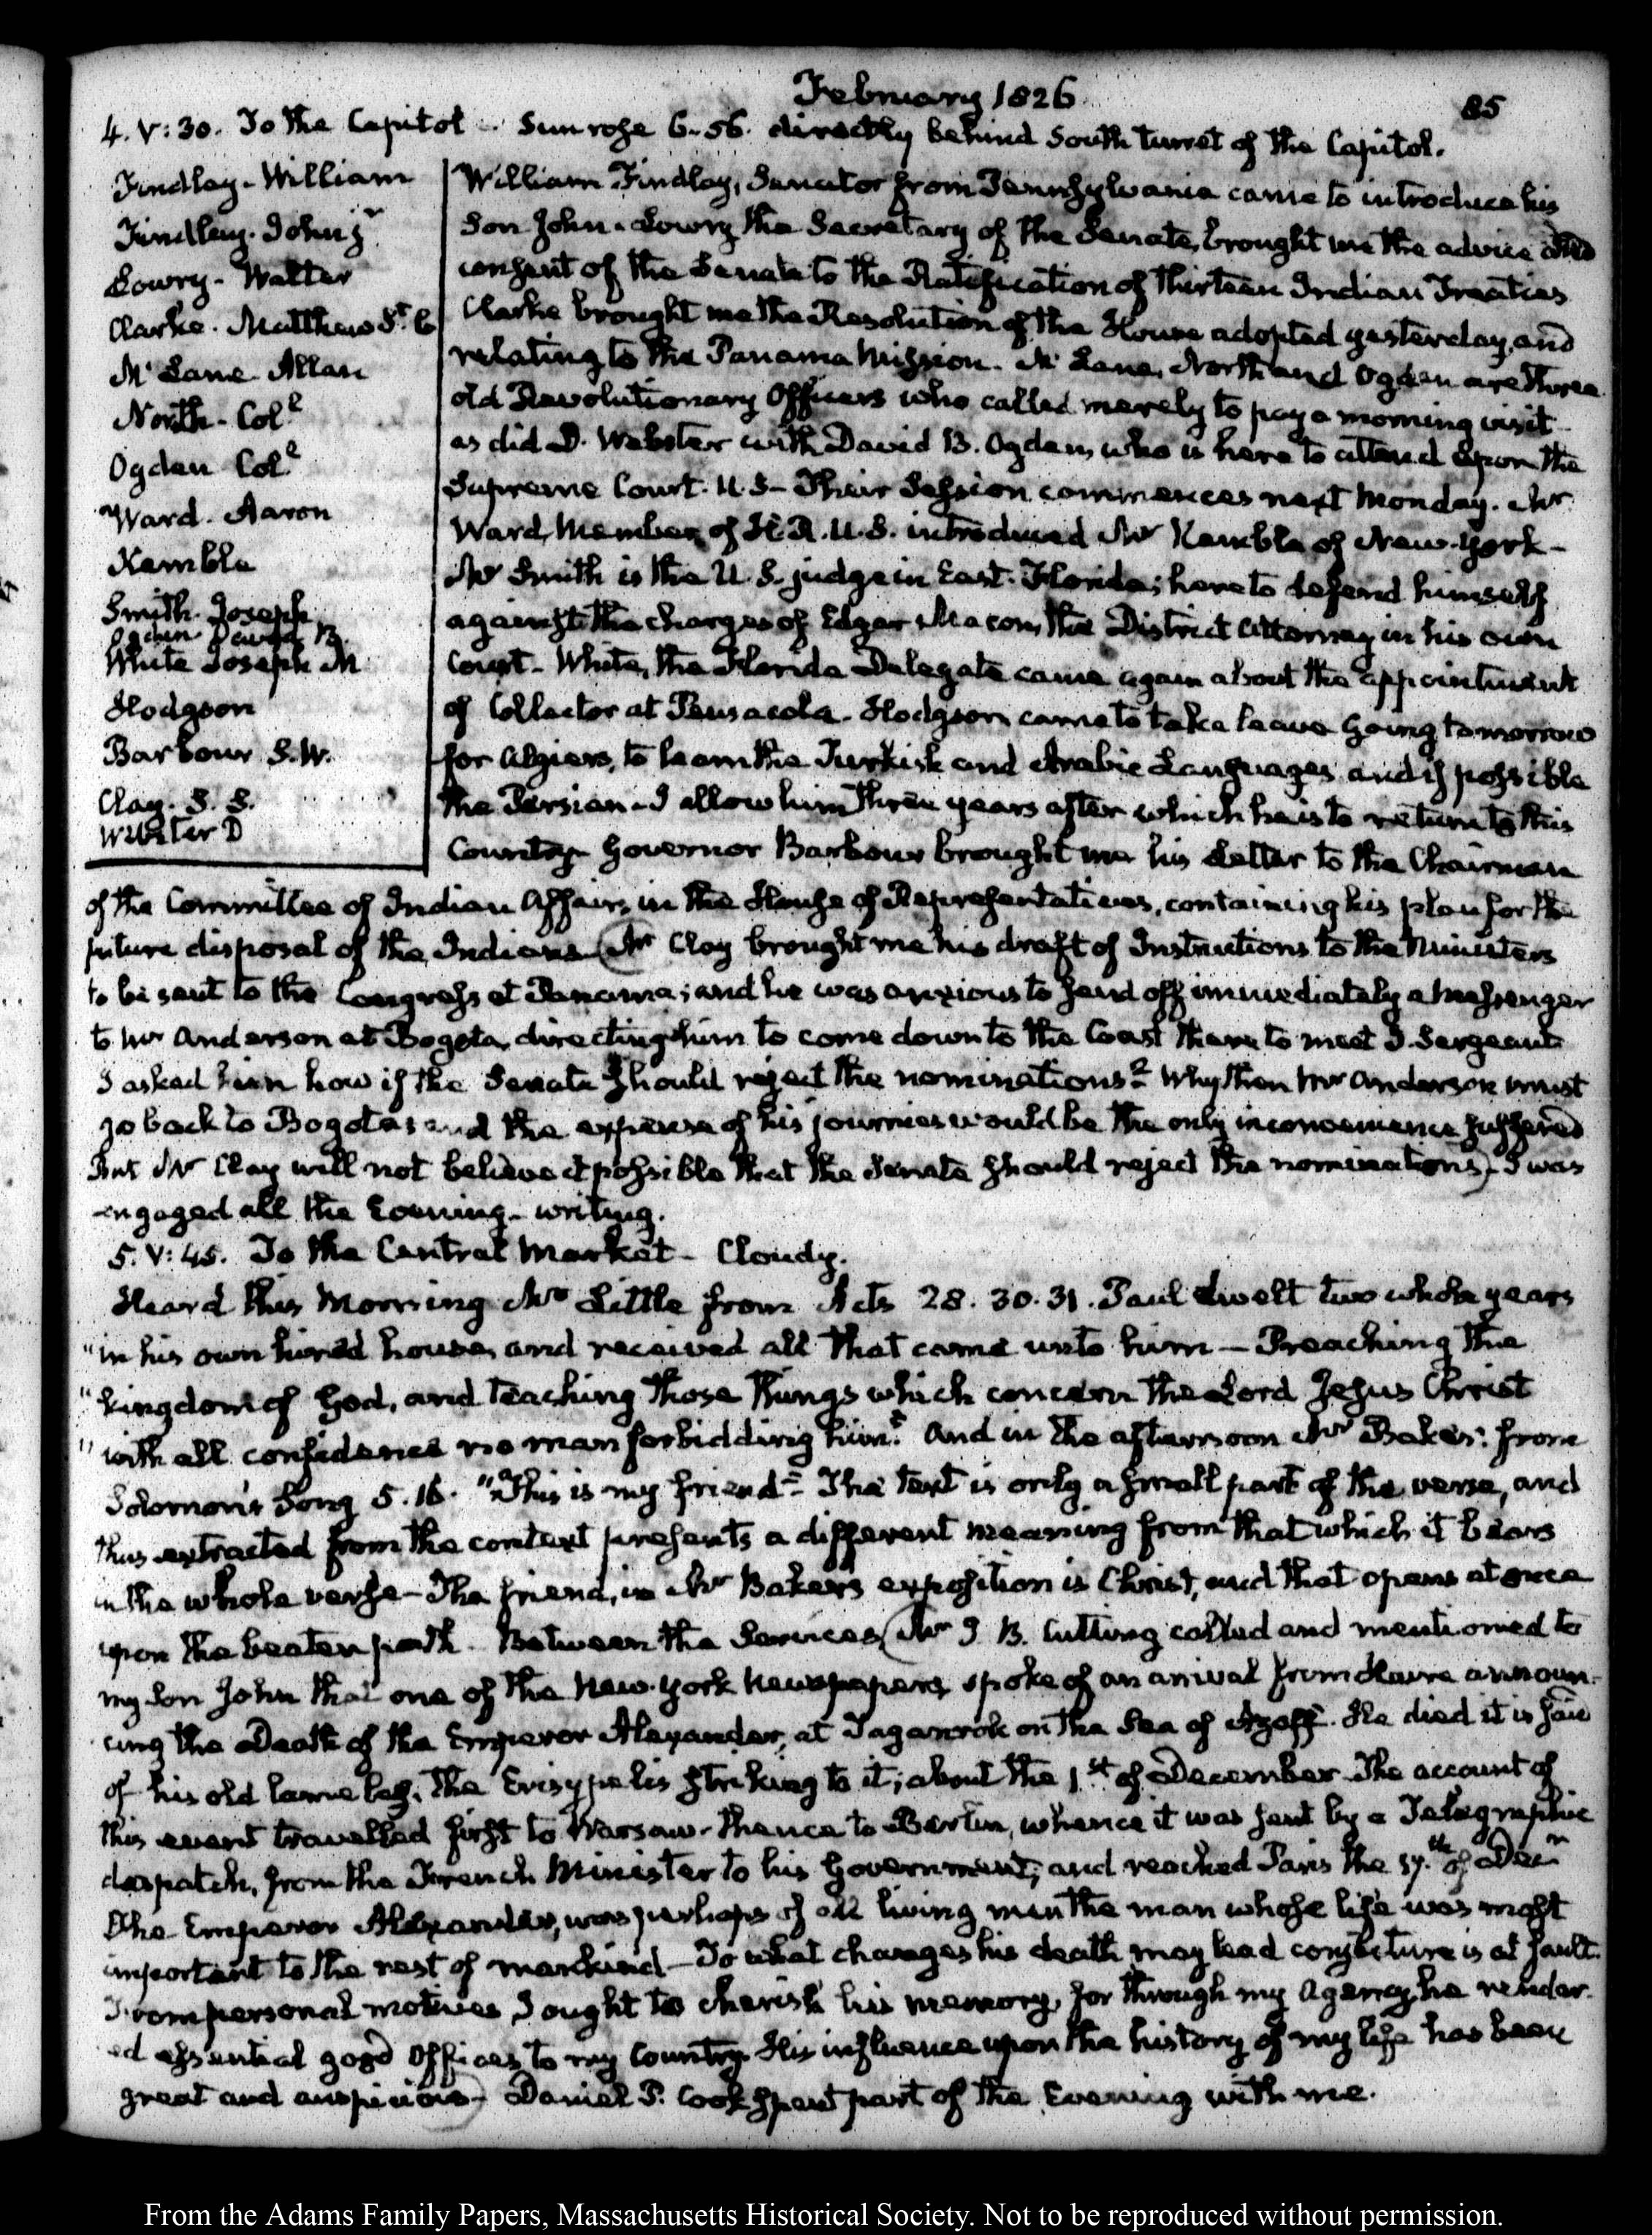 February 1826
85
4. V:30. To the Capitol - Sun rose 6-56. directly behind South turret of the Capitol.
Findlay - William
Findlay. John jr
Lowry - Walter
Clarke. Matthew St. C
Mc Lane Allan
North - Coll
Ogden Coll
Ward. Aaron
Kemble
Smith. Joseph
Ogden David B.
White Joseph M
Hodgson
Barbour S.W.
Clay. S. S.
Webster D
William Findlay, Senator from Pennsylvania came to introduce his
Son John. Lowry the Secretary of the Senate, brought me the advice and
consent of the Senate to the Ratification of thirteen Indian Treaties
Clarke brought me the Resolution of the House adopted yesterday, and
relating to the Panama Mission. Mc Lane, North and Ogden are three
old Revolutionary Officers who called merely to pay a morning visit -
as did D. Webster with David B. Ogden, who is here to attend upon the
Supreme Court. U.S - Their Session commences next Monday. Mr
Ward, Member of H.R.U.S. introduced Mr Kemble of New-York -
Mr Smith is the U.S. judge in East-Florida; here to defend himself
against the charges of Edgar Macon, the District Attorney in his own
Court - White, the Florida Delegate came again about the appointment
of Collector at Pensacola. Hodgson came to take leave going tomorrow
for Algiers, to learn the Turkish and Arabic Languages and if possible
the Persian - I allow him three years after which he is to return to this
Country. Governor Barbour brought me his Letter to the Chairman
of the Committee of Indian Affairs in the House of Representatives, containing his plan for the
future disposal of the Indians. (Mr Clay brought me his draft of Instructions to the Ministers
to be sent to the Congress at Panama; and he was anxious to send off immediately a Messenger
to Mr Anderson at Bogota, directing him to come down to the Coast there to meet J. Sergeant
I asked him how if the Senate should reject the nominations? Why then Mr Anderson must
go back to Bogota; and the expense of his journies would be the only inconvenience suffered
But Mr Clay will not believe it possible that the Senate should reject the nominations) - I was
engaged all the Evening - writing.
5. V:45. To the Central Market - Cloudy.
Heard this Morning Mr Little from Acts 28. 30. 31. Paul dwelt two whole years
"in his own hired house, and received all that came unto him - Preaching the
"kingdom of God, and teaching those things which concern the Lord Jesus Christ
"with all confidence no man forbidding him." And in the afternoon Mr Baker: from
Solomon's Song 5.16. "This is my friend" - The text is only a small part of the verse, and
thus extracted from the context presents a different meaning from that which it bears
in the whole verse - The friend, in Mr Baker's exposition is Christ, and that opens at once
upon the beaten path. Between the Services (Mr J. B. Cutting called and mentioned to
my Son John that one of the New-York Newspapers spoke of an arrival from Havre announ-
cing the Death of the Emperor Alexander, at Taganrok on the Sea of Azoff. He died it is said
of his old lame leg, the Erisypelis striking to it; about the 1st of December. The account of
this event travelled first to Warsaw - thence to Berlin, whence it was sent by a Telegraphic
despatch, from the French Minister to his Government; and reached Paris the 17.th of Decr
The Emperor Alexander, was perhaps of all living men the man whose life was most
important to the rest of mankind - To what changes his death may lead conjecture is at fault.
From personal motives I ought to cherish his memory, for through my Agency he render-
ed essential good Offices to my Country. His influence upon the history of my life has been
great and auspicious) - Daniel P. Cook spent part of the Evening with me.
From the Adams Family Papers, Massachusetts Historical Society. Not to be reproduced without permission.